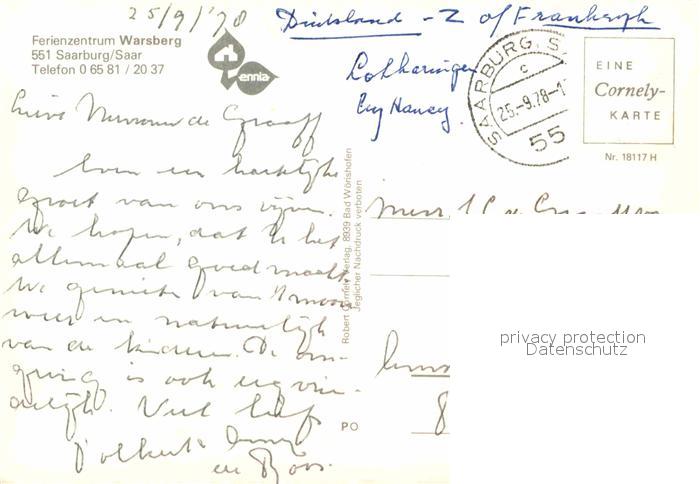 25/9/'78
Duitsland - Z of Frankrijk
Ferienzentrum Warsberg
551 Saarburg/Saar
Telefon 0 65 81 / 20 37
ennia
Lotharingen
bij Nancy.
SAARBURG, S
c
25.-9.78-1
55
EINE
Cornely-
KARTE
Nr. 18117 H
Lieve Mevrouw de Graaff
Even een hartelijke
groet van ons vijven.
We hopen, dat U het
allemaal goed maakt.
We genieten van 't mooie
weer en natuurlijk
van de kinderen. De om-
geving is ook erg vrien-
delijk. Veel liefs
en Roos.
Robert Cornely Verlag, 8939 Bad Wörishofen
Jeglicher Nachdruck verboten
Mevr.
PO
8
privacy protection
Datenschutz